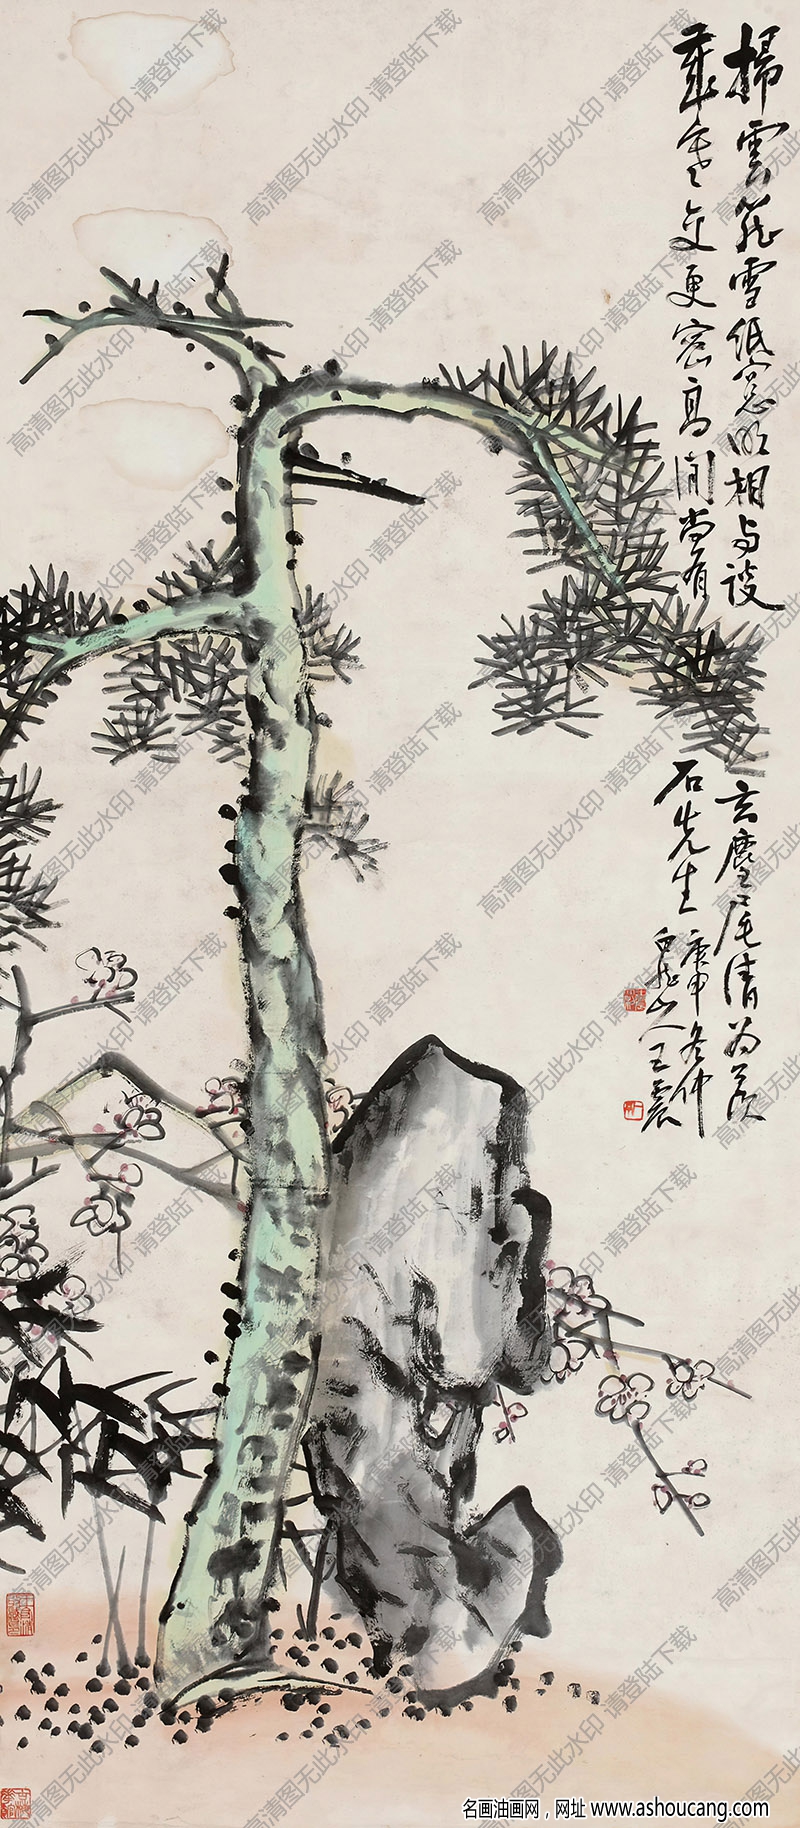 掃雲籠雪紙窓明相与談
玄麈尾清为羨
歲寒交更密高閒尚有
石先生
庚申冬仲
白龍山人王震
高清图无此水印 请登陆下载
名画油画网，网址 www.ashoucang.com